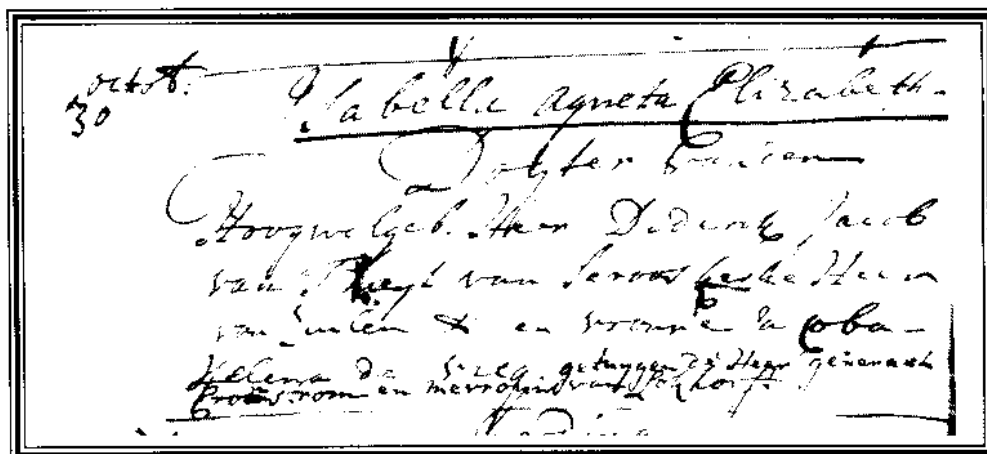 octob:
30
Isabella Agneta Elizabeth.
Dogter van den
Hoogwelgeb. Heer Diderik Jacob
van Tuyl van Serooskerke Heer
van Zuilen & en vrouwe Jacoba
Helena de getuygen de Heer generael
en mevrouw van